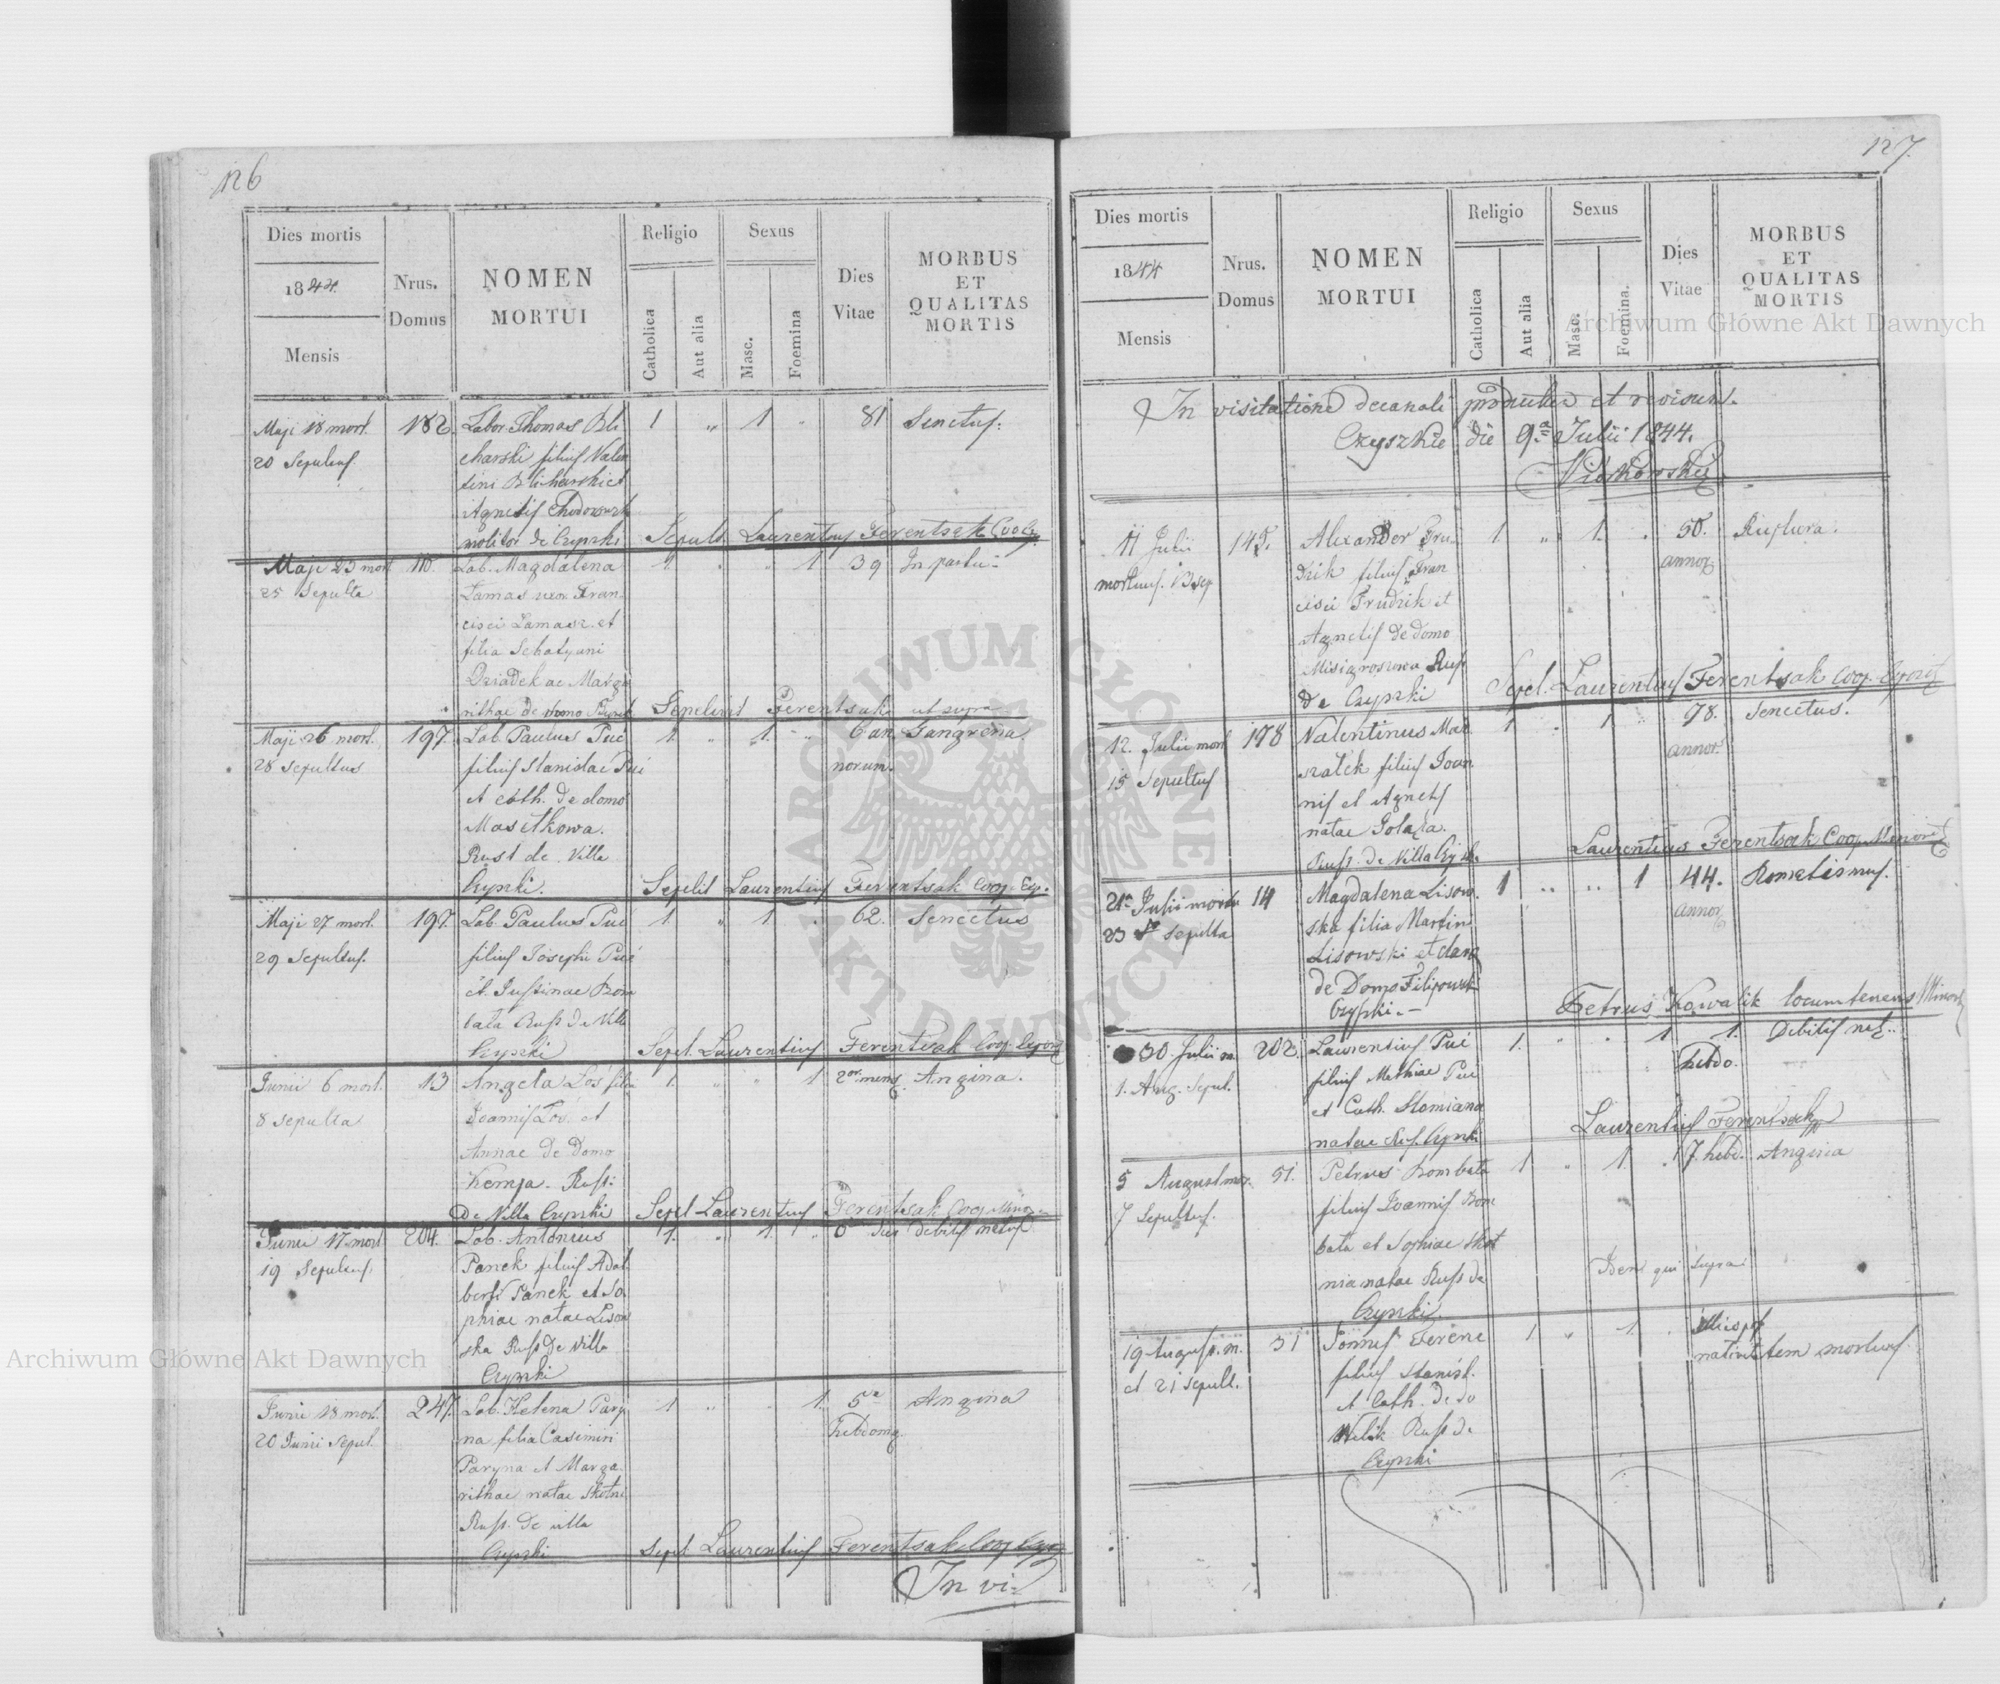 126
Dies mortis
1844.
Mensis
Nrus.
Domus
NOMEN
MORTUI
Religio
Catholica
Aut alia
Sexus
Masc.
Foemina
Dies
Vitae
MORBUS
ET
QUALITAS
MORTIS
Maji 18 mort. 182. Labor. Thomas Bli 1 " 1 " 81 Senectus.
20 Sepultus. charski filius Valen
tini Blicharski et
Agnetis
molitor de Czyszki Sepult Laurentius Ferentsak Coo
Maji 23 mort 110. Lab. Magdalena 1. " " 1 39 In partu
25 Sepulta Lamasz uxor Fran
cisci Lamasz et
filia Sebastyani
Dziadek ac Marga
rithae de domo Sepelivit Ferentsak ut supra
Maji 26 mort. 197. Lab. Paulus Puć 1. " 1. " 6 an Gangrena
28 Sepultus filius Stanislai Puć norum.
et Cath. de domo
Masetkowa.
Rust de Villa
Czyszki. Sepelit Laurentius Ferentsak Coop. Czy.
Maji 27 mort. 197. Lab. Paulus Puć 1. " 1 " 62. Senectus
29 Sepultus. filius Josephi Puć
et Justinae Bom
bata Rust de Villa
Czyszki Sepel. Laurentius Ferentsak Coop.
Junii 6 mort. 13 Angela Łoś filia 1. " " 1 2or mens. Angina.
8 sepulta Joannis Łoś et
Annae de Domo
Kempa. Rust.
De Villa Czyszki Sepel Laurentius Ferentsak Coop.
Junii 17 mort 204. Lab. Antonius 1. " 1. " 6 Debilis natus
19 Sepultus. Panek filius Adal
berti Panek et So
phiae natae Lisow
ska Rust De Villa
Czyszki
Junii 18 mort. 247. Lab. Helena Pary 1 " " 1. 5 Angina
20 Junii Sepul. na filia Casimiri hebdom
Paryna et Marga
rithae natae
Rust. De villa
Czyszki Sepel Laurentius Ferentsak Coop
In vi-
127.
Dies mortis
1844
Mensis
Nrus.
Domus
NOMEN
MORTUI
Religio
Catholica
Aut alia
Sexus
Masc.
Foemina.
Dies
Vitae
MORBUS
ET
QUALITAS
MORTIS
In visitatione decanali producta et revisum.
Czyszkie die 9na Julii 1844.
11 Julii 145. Alexander Gru 1 " 1. . 50. Ruptura.
mortuus. 13 sep. dzik filius Fran annor
cisci Grudzik et
Agnetis de domo
Rust
de Czyszki Sepel. Laurentius Ferentsak Coop.
12. Julii mort 178 Valentinus Mar 1 " 1 78. Senectus.
15 Sepultus szałek filius Joan annor
nis et Agnetis
natae
Rust. de Villa Laurentius Ferentsak Coop. Minorit
21 Julii mortu 14 Magdalena Lisow 1 " " 1 44. Rometismus.
23 Sepulta ska filia Martini annor
Lisowski et
de Domo Filipowska
Czyszki. Petrus Kowalik locumtenens
30. Julii m. 202. Laurentius Puć 1. " " 1 1. Debilis nat.
1. Aug. Sepul. filius Mathiae Puć hebdo.
et Cath. Stomiana
natae Rus. Czyszki Laurentius Ferentsak
5 August mor. 51. Petrus Bombata 1. " 1. . 7 hebd. Angina
7 Sepultus. filius Joannis Bom
bata et Sophiae Skot
nia natae Rust de Idem qui Supra
Czyszki.
19 August. m. 31 Joannes Ferenc 1. " 1. . post
et 21 sepult. filius Stanisl. nativitatem mortuus.
et Cath. de do
Wilk Rust de
Czyszki
Archiwum Główne Akt Dawnych
Archiwum Główne Akt Dawnych
ARCHIWUM GŁÓWNE AKT DAWNYCH
1808